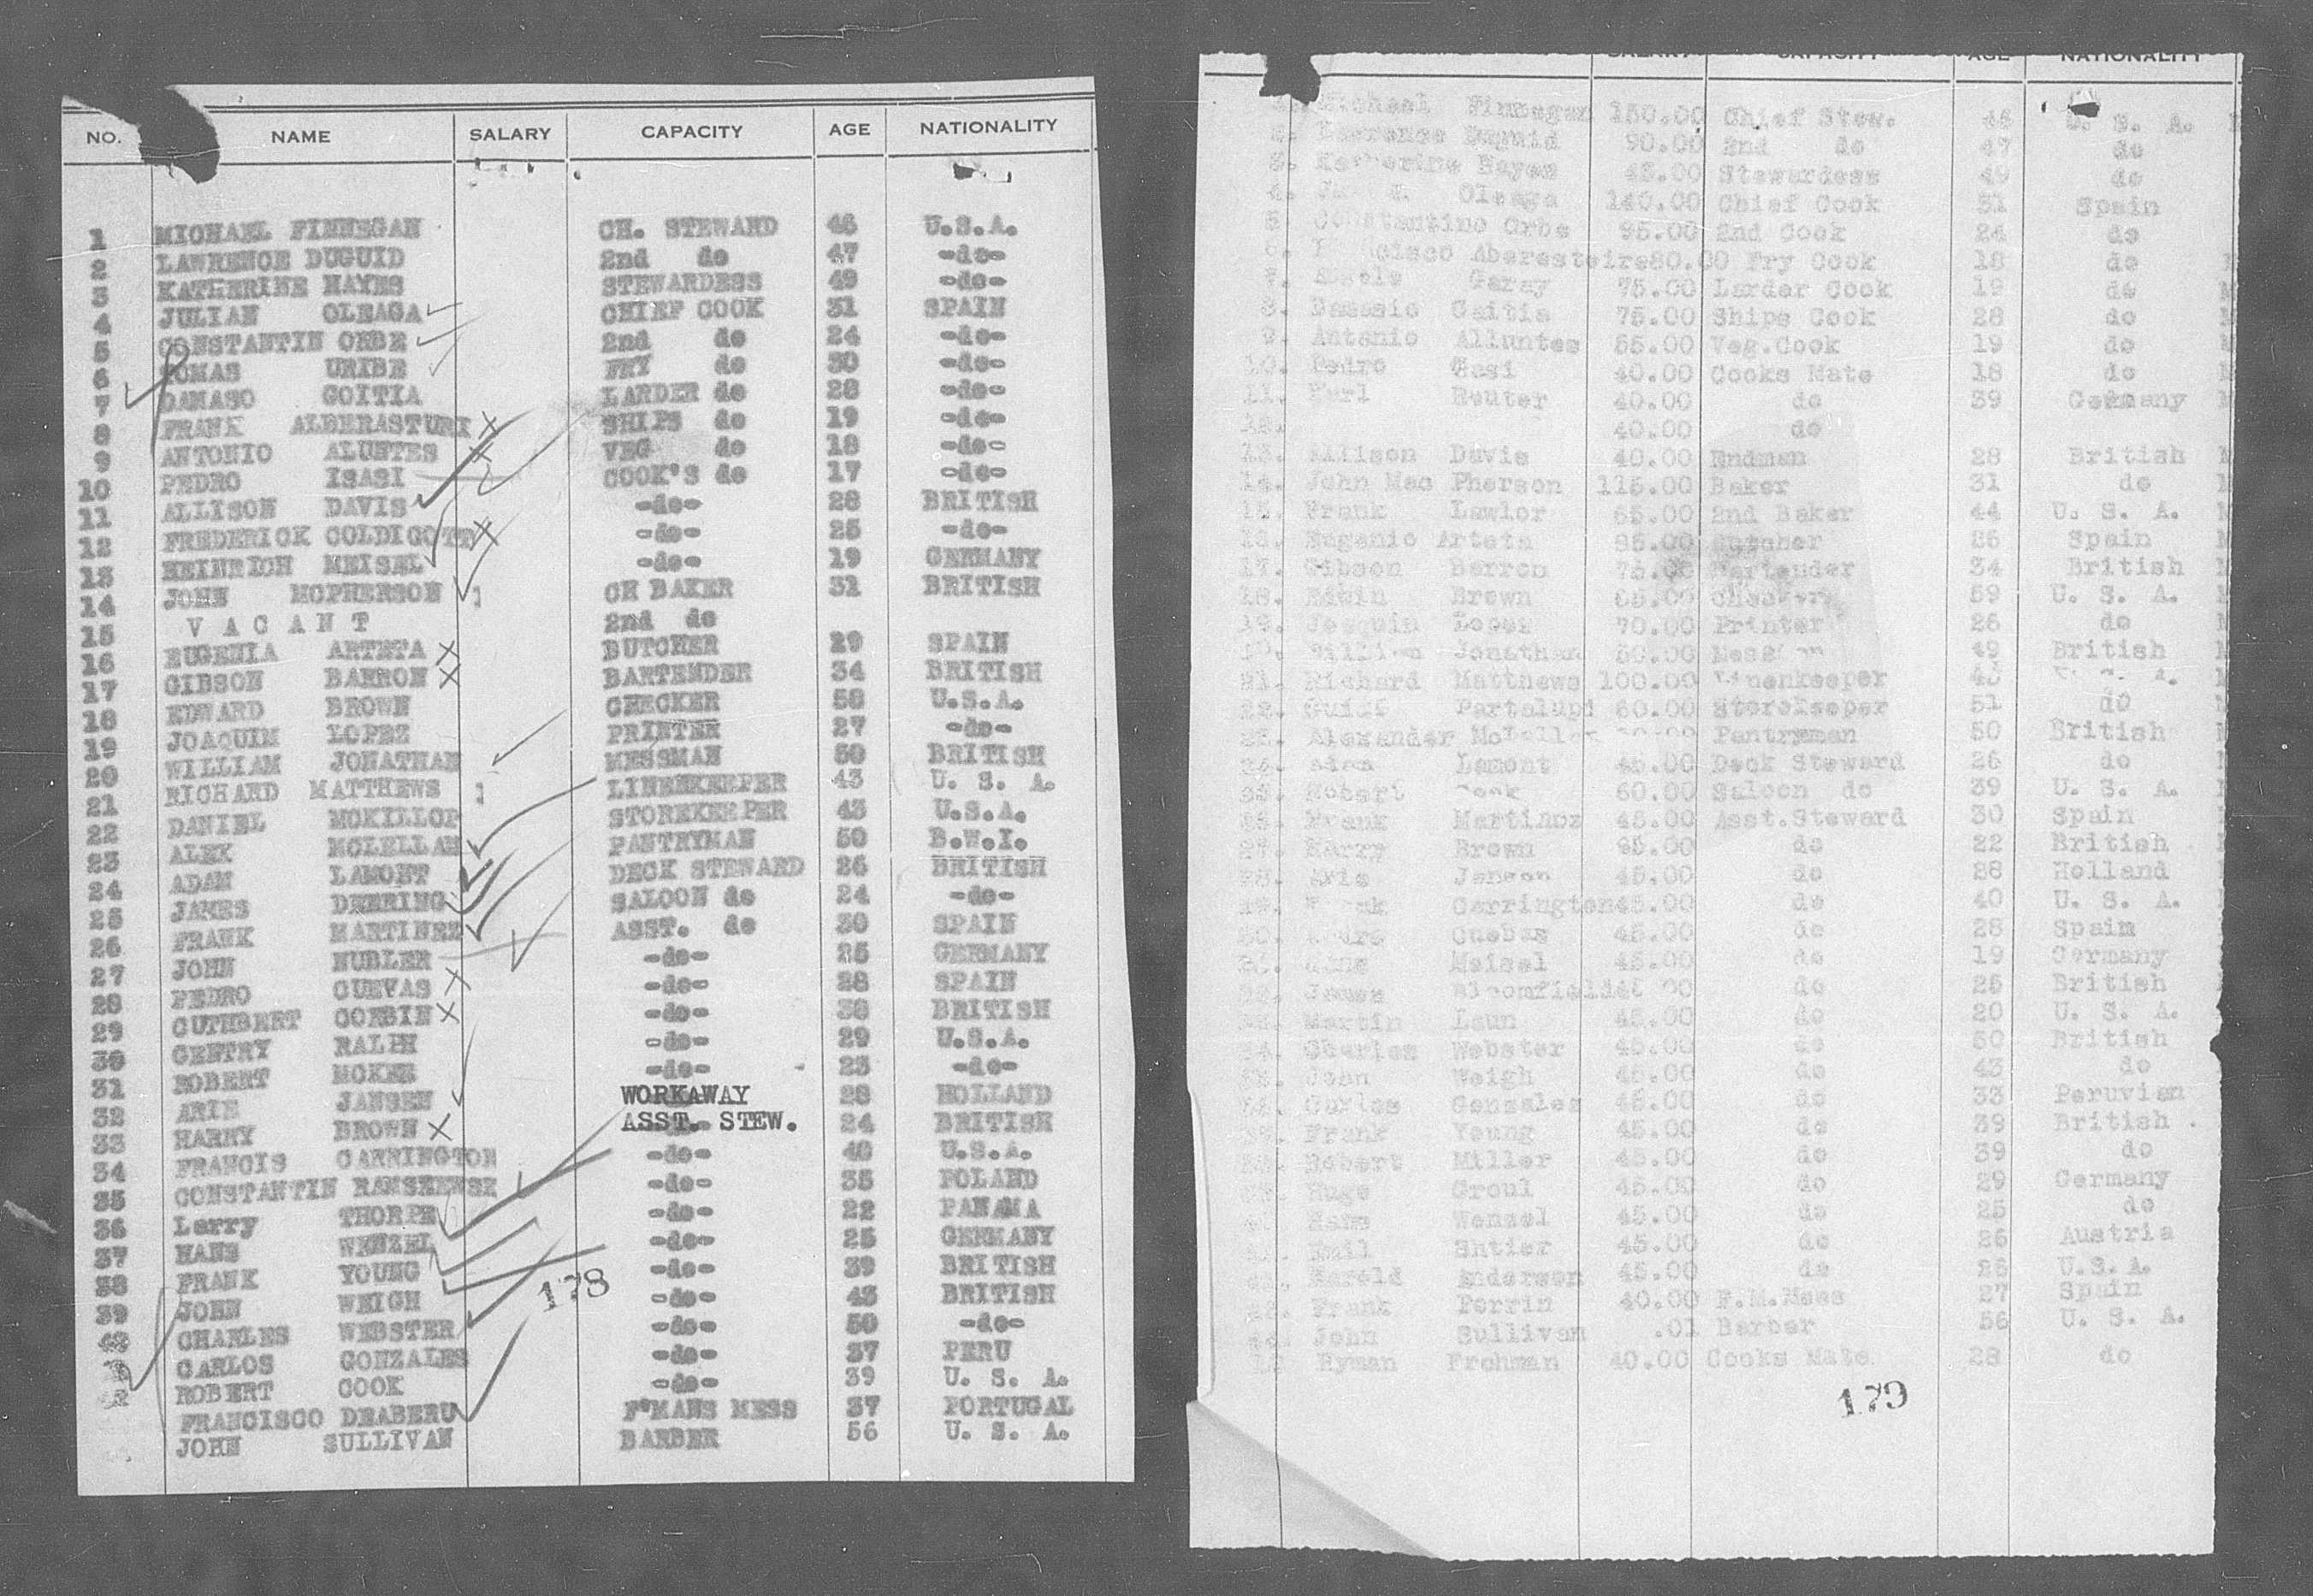 NO. NAME SALARY CAPACITY AGE NATIONALITY
1 MICHAEL FINNEGAN CH. STEWARD 46 U.S.A.
2 LAWRENCE DUGUID 2nd do 47 -do-
3 KATHERINE HAYES STEWARDESS 49 -do-
4 JULIAN OLEAGA CHIEF COOK 31 SPAIN
5 CONSTANTIN ORBE 2nd do 24 -do-
6 TOMAS URIBE FRY do 30 -do-
7 DAMASO GOITIA LARDER do 28 -do-
8 FRANK ALBERASTURI SHIPS do 19 -do-
9 ANTONIO ALUNTES VEG do 18 -do-
10 PEDRO ISASI COOK'S do 17 -do-
11 ALLISON DAVIS -do- 28 BRITISH
12 FREDERICK COLDICOTT -do- 25 -do-
13 HEINRICH MEISEL -do- 19 GERMANY
14 JOHN MCPHERSON CH BAKER 31 BRITISH
15 V A C A N T 2nd do
16 EUGENIA ARTETA BUTCHER 29 SPAIN
17 GIBSON BARRON BARTENDER 34 BRITISH
18 EDWARD BROWN CHECKER 58 U.S.A.
19 JOAQUIM LOPEZ PRINTER 27 -do-
20 WILLIAM JONATHAN MESSMAN 50 BRITISH
21 RICHARD MATTHEWS LINENKEEPER 43 U. S. A.
22 DANIEL MCKILLOP STOREKEEPER 43 U.S.A.
23 ALEK MCLELLAN PANTRYMAN 50 B.W.I.
24 ADAM LAMONT DECK STEWARD 26 BRITISH
25 JAMES DEERING SALOON do 24 -do-
26 FRANK MARTINEZ ASST. do 30 SPAIN
27 JOHN NUBLER -do- 25 GERMANY
28 PEDRO CUEVAS -do- 28 SPAIN
29 CUTHBERT CORBIN -do- 38 BRITISH
30 GENTRY RALPH -do- 29 U.S.A.
31 ROBERT MCKEE -do- 23 -do-
32 ARIE JANSEN WORKAWAY 28 HOLLAND
33 HARRY BROWN ASST. STEW. 24 BRITISH
34 FRANCIS CARRINGTON -do- 40 U.S.A.
35 CONSTANTIN -do- 35 POLAND
36 Larry THORPE -do- 22 PANAMA
37 HANS WENZEL -do- 25 GERMANY
38 FRANK YOUNG -do- 39 BRITISH
39 JOHN WEIGH -do- 43 BRITISH
CHARLES WEBSTER -do- 50 -do-
CARLOS GONZALES -do- 37 PERU
ROBERT COOK -do- 39 U. S. A.
FRANCISCO DEABERU F'MANS MESS 37 PORTUGAL
JOHN SULLIVAN BARBER 56 U. S. A.
178
SALARY CAPACITY AGE NATIONALITY
Michael Finnegan 150.00 Chief Stew. 46 U. S. A.
2. Lawrence Duguid 90.00 2nd do 47 do
3. Katherine Hayes 45.00 Stewardess 49 do
4. Oleaga 140.00 Chief Cook 31 Spain
5. Constantino Orbe 95.00 2nd Cook 24 do
6. 80.00 Fry Cook 18 do
7. Garay 75.00 Larder Cook 19 do
8. Damasio Goitia 75.00 Ships Cook 28 do
9. Antonio Alluntes 55.00 Veg.Cook 19 do
10. Pedro 40.00 Cooks Mate 18 do
11. Reuter 40.00 do 39 Germany
12. 40.00 do
13. Allison Davis 40.00 Endman 28 British
14. John Mac Pherson 115.00 Baker 31 do
15. Frank Lawlor 65.00 2nd Baker 44 U. S. A.
16. Eugenio Arteta 95.00 Butcher 26 Spain
17. Gibson Barron 75.00 Bartender 34 British
18. Edwin Brown Checker 59 U. S. A.
19. Joaquin Lopez 70.00 Printer 26 do
William Jonathan Messman 49 British
21. Richard Matthews 100.00 Linenkeeper 43
22. Guido Partalupi 60.00 Storekeeper 51 do
23. Alexander Pantryman 50 British
24. Lamont 45.00 Deck Steward 26 do
25. Robert Cook 60.00 Saloon do 39 U. S. A.
26. Frank Martinez 45.00 Asst.Steward 30 Spain
27. Harry Brown do 22 British
28. Arie Jansen 45.00 do 28 Holland
Carrington 45.00 do 40 U. S. A.
Cuebas 45.00 do 28 Spain
Meisel 45.00 do 19 Germany
James Bloomfield do 25 British
Martin Laun 45.00 do 20 U. S. A.
Charles Webster 45.00 do 50 British
John Weigh 45.00 do 43 do
Carlos Gonzales 45.00 do 33 Peruvian
Frank Young 45.00 do 39 British
Robert Miller 45.00 do 39 do
Hugo 45.00 do 29 Germany
Hans Wenzel 45.00 do 25 do
Emil 45.00 do 26 Austria
Harold Anderson 45.00 do 26 U.S.A.
Frank 40.00 F.M.Mess 27 Spain
John Sullivan .01 Barber 56 U. S. A.
Hyman Frohman 40.00 Cooks Mate 28 do
179